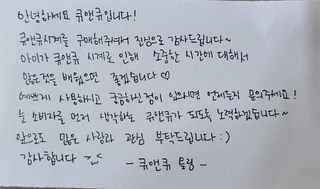 안녕하세요 큐앤큐입니다!
큐앤큐시계를 구매해주셔서 진심으로 감사드립니다~
아이가 큐앤큐 시계로 인해 소중한 시간에 대해서
많은것을 배웠으면 좋겠습니다♡
예쁘게 사용하시고 궁금하신점이 있으시면 언제든지 문의주세요!
늘 소비자를 먼저 생각하는 큐앤큐가 되도록 노력하겠습니다~
앞으로도 많은 사랑과 관심 부탁드립니다 :)
감사합니다 ^^
- 큐앤큐 드림 -